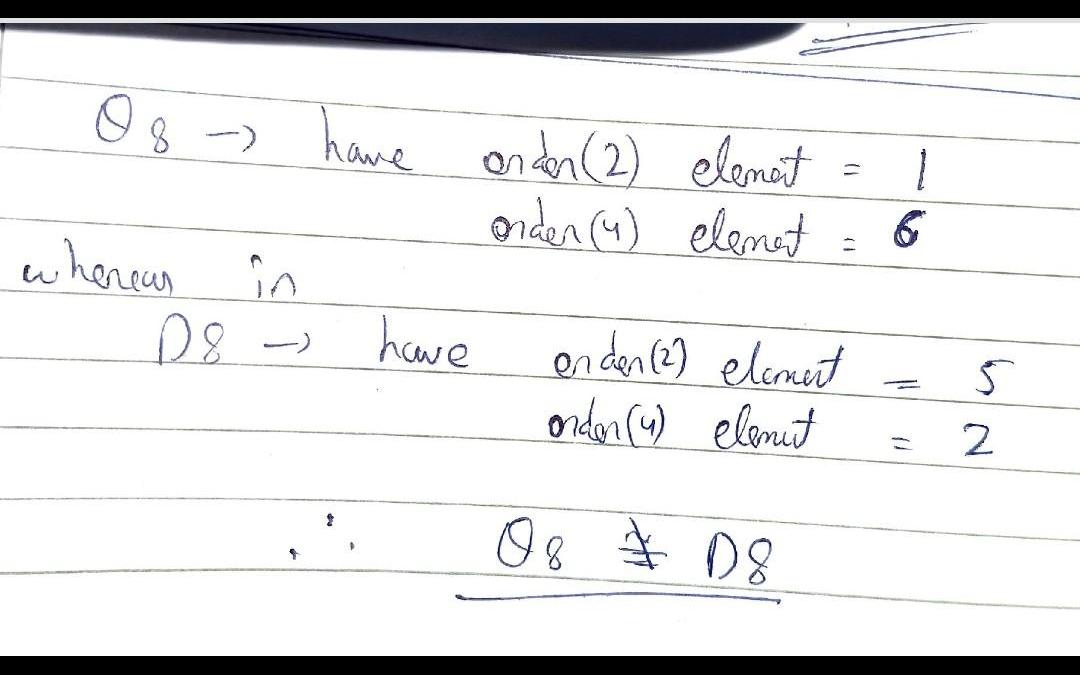 Q8 → have order(2) element = 1
order(4) element = 6
whereas in
D8 → have order(2) element = 5
order(4) element = 2
∴ Q8 ≇ D8